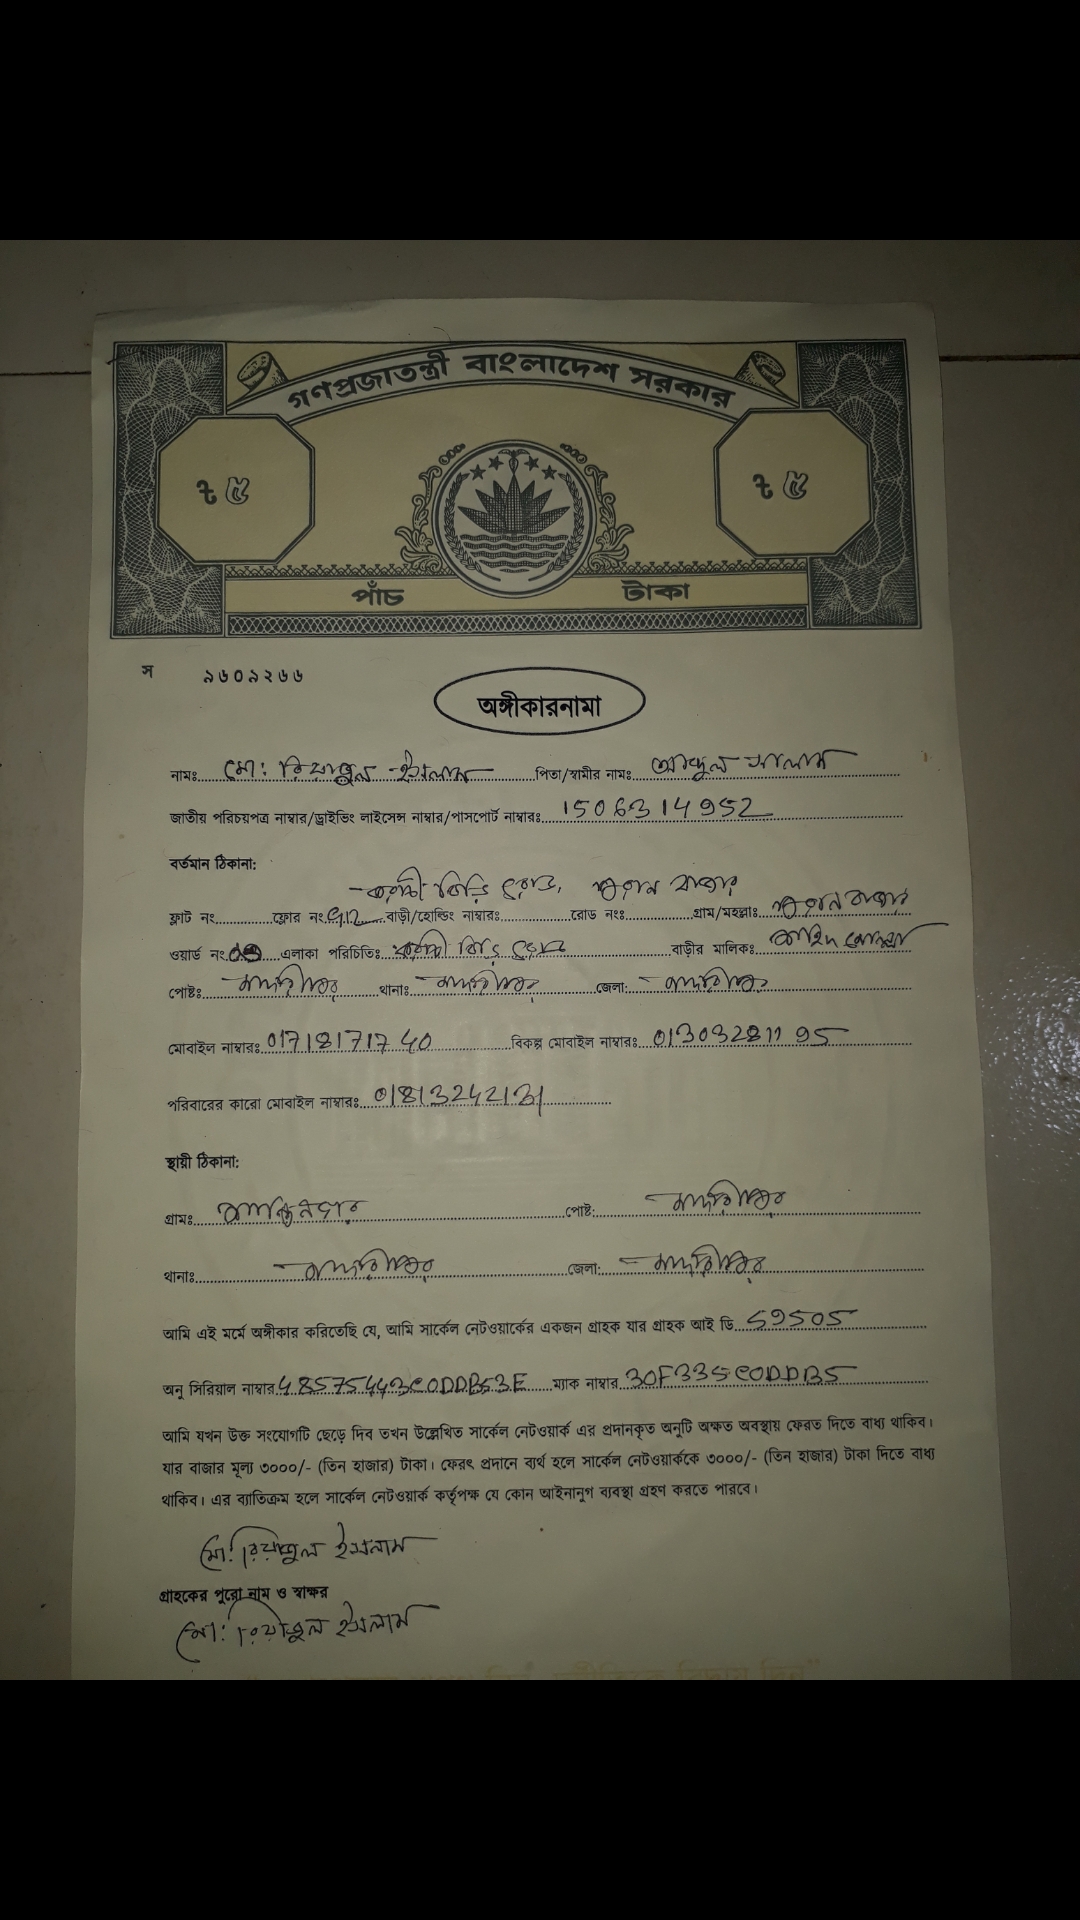 গণপ্রজাতন্ত্রী বাংলাদেশ সরকার
৳ ৫ ৳ ৫
পাঁচ টাকা
স ৯৬০৯২৬৬
অঙ্গীকারনামা
নামঃ মো: রিয়াজুল ইসলাম পিতা/স্বামীর নামঃ আব্দুল সালাম
জাতীয় পরিচয়পত্র নাম্বার/ড্রাইভিং লাইসেন্স নাম্বার/পাসপোর্ট নাম্বারঃ 1506314952
বর্তমান ঠিকানা:
বিড়ি রোড, পুরান বাজার
ফ্লাট নং ফ্লোর নং বাড়ী/হোল্ডিং নাম্বারঃ রোড নংঃ গ্রাম/মহল্লাঃ পুরান বাজার
ওয়ার্ড নং এলাকা পরিচিতিঃ বিড়ি রোড বাড়ীর মালিকঃ
পোষ্টঃ মাদারীপুর থানাঃ মাদারীপুর জেলা: মাদারীপুর
মোবাইল নাম্বারঃ 01718171740 বিকল্প মোবাইল নাম্বারঃ 01303281195
পরিবারের কারো মোবাইল নাম্বারঃ 01813242131
স্থায়ী ঠিকানা:
গ্রামঃ পোষ্ট: মাদারীপুর
থানাঃ মাদারীপুর জেলা: মাদারীপুর
আমি এই মর্মে অঙ্গীকার করিতেছি যে, আমি সার্কেল নেটওয়ার্কের একজন গ্রাহক যার গ্রাহক আই ডি 59505
অনু সিরিয়াল নাম্বার 48575443C0DDB53E ম্যাক নাম্বার 30F335C0DDB5
আমি যখন উক্ত সংযোগটি ছেড়ে দিব তখন উল্লেখিত সার্কেল নেটওয়ার্ক এর প্রদানকৃত অনুটি অক্ষত অবস্থায় ফেরত দিতে বাধ্য থাকিব।
যার বাজার মূল্য ৩০০০/- (তিন হাজার) টাকা। ফেরৎ প্রদানে ব্যর্থ হলে সার্কেল নেটওয়ার্ককে ৩০০০/- (তিন হাজার) টাকা দিতে বাধ্য
থাকিব। এর ব্যাতিক্রম হলে সার্কেল নেটওয়ার্ক কর্তৃপক্ষ যে কোন আইনানুগ ব্যবস্থা গ্রহণ করতে পারবে।
মো: রিয়াজুল ইসলাম
গ্রাহকের পুরো নাম ও স্বাক্ষর
মো: রিয়াজুল ইসলাম